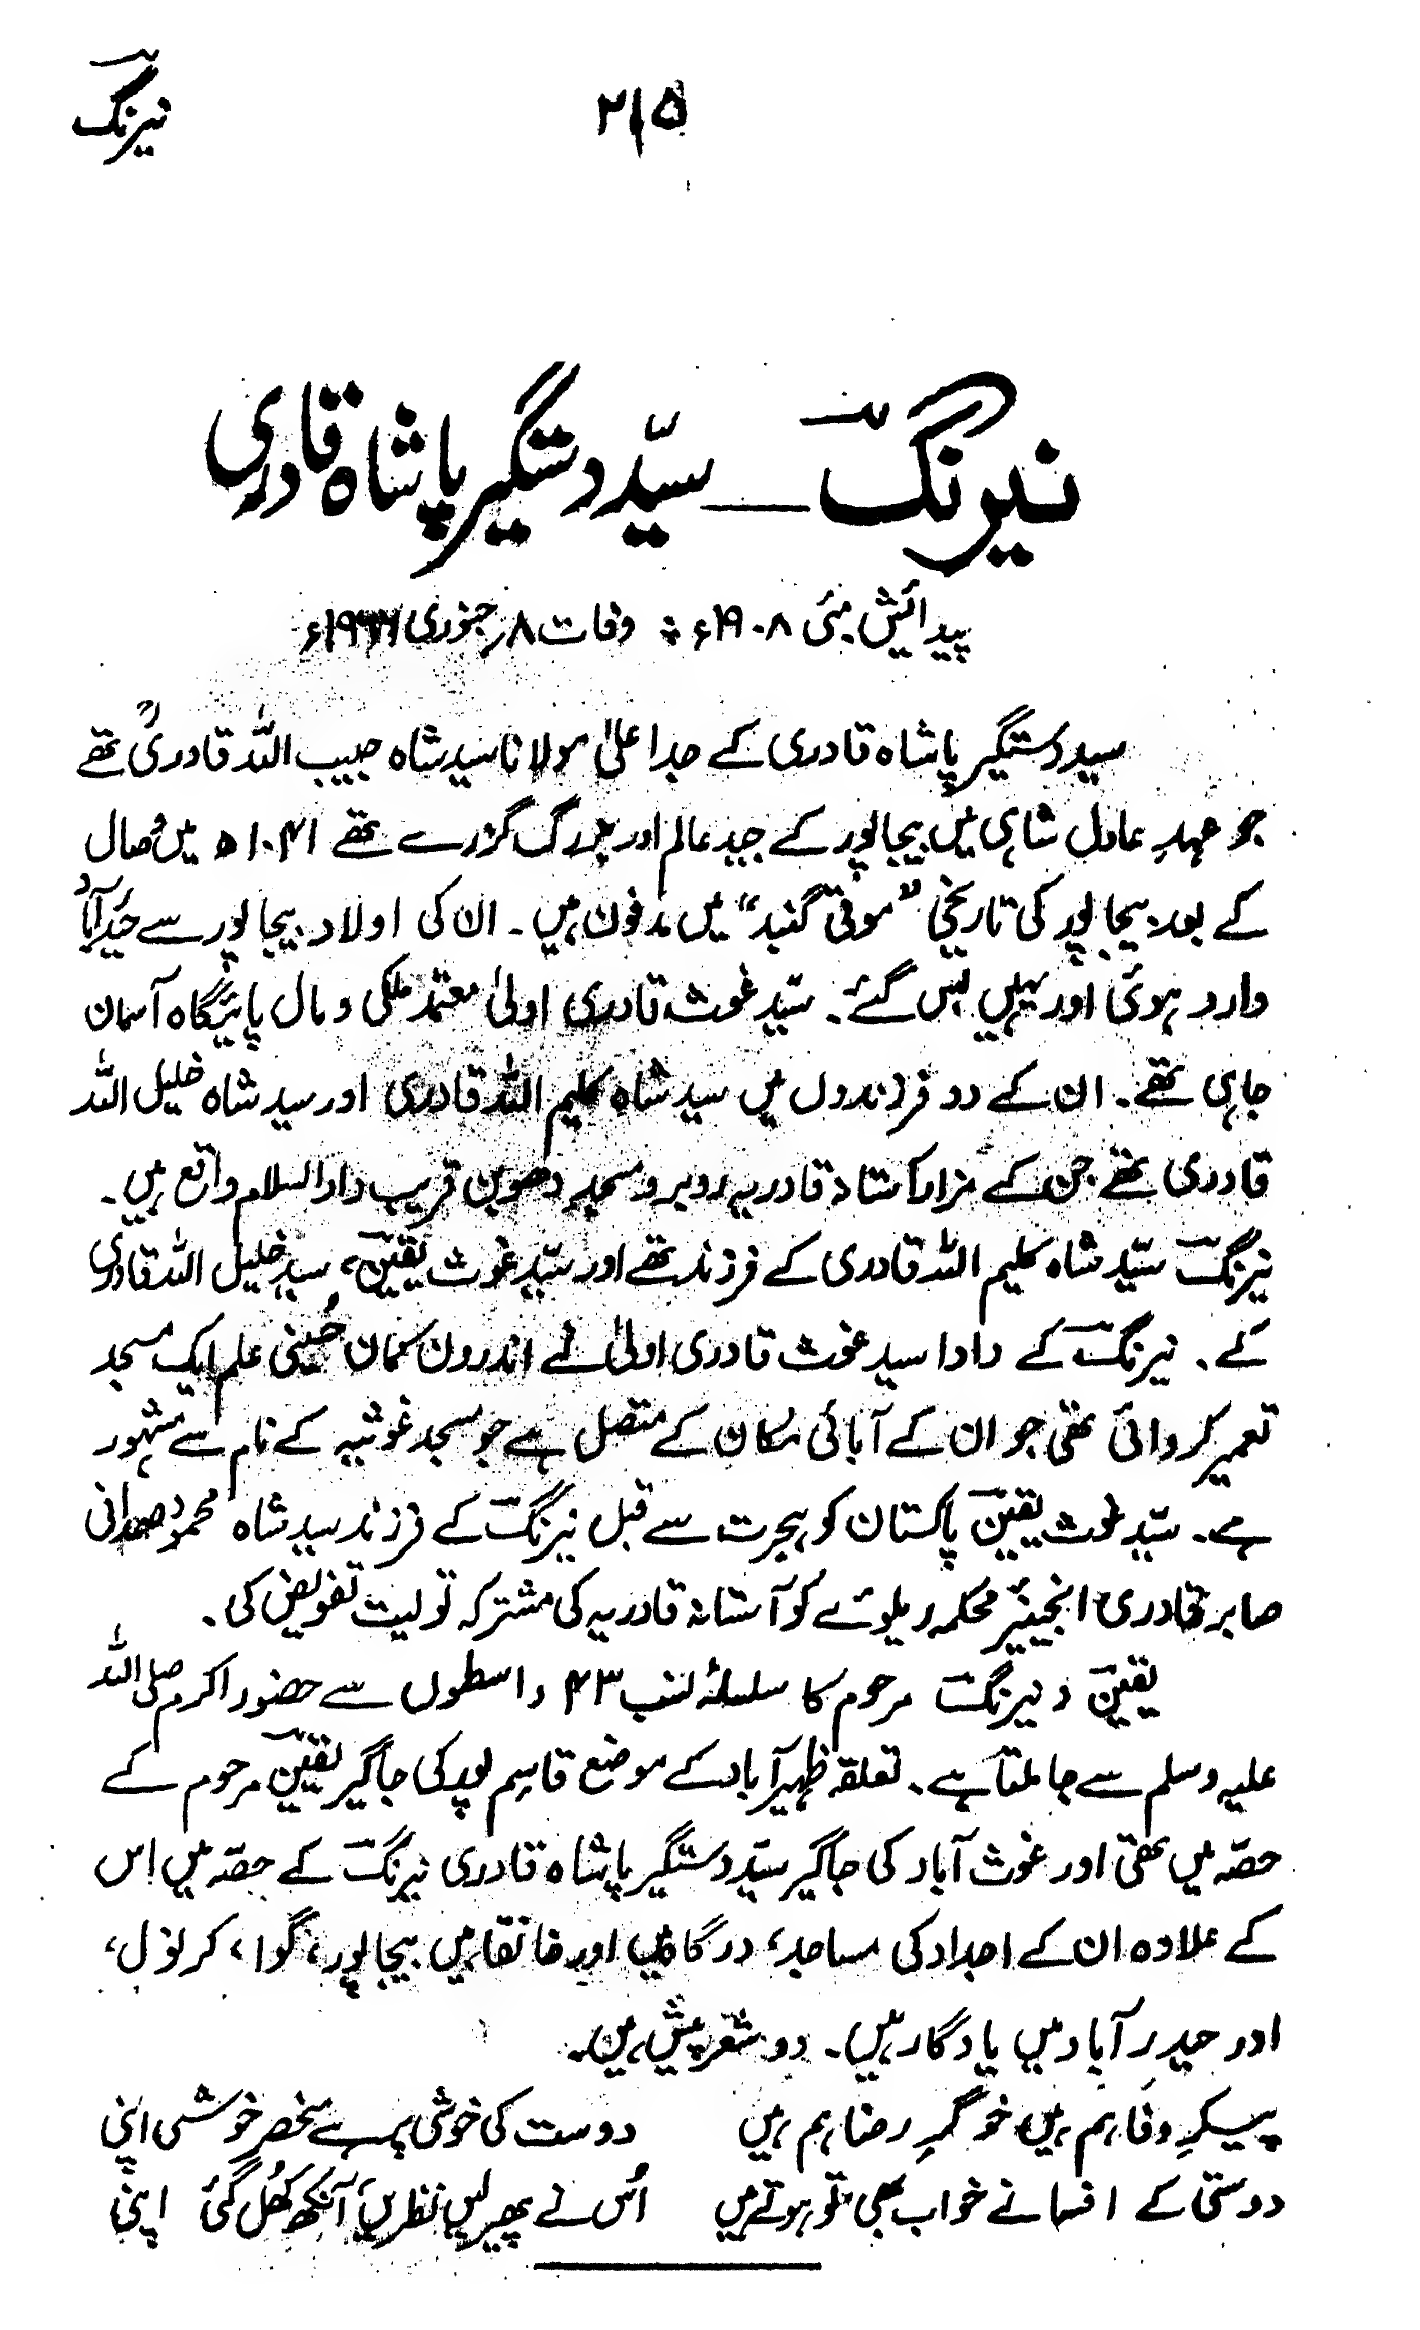 نیرنگ
۲۱۵
نیرنگ — سیّد دستگیر پاشاہ قادری
پیدائش مئی ۱۹۰۸ء ؞ وفات ۸؍جنوری
سید دستگیر پاشاہ قادری کے جد اعلیٰ مولانا سید شاہ حبیب اللہ قادریؒ تھے
جو عہدِ عادل شاہی میں بیجاپور کے جید عالم اور بزرگ گزرے تھے ۱۰۴۱ھ میں وصال
کے بعد بیجاپور کی تاریخی "موتی گنبد" میں مدفون ہیں۔ ان کی اولاد بیجاپور سے حیدرآباد
وارد ہوئی اور یہیں بس گئے۔ سیّد غوث قادری اولیٰ معتمد ملکی و مال پائیگاہ آسمان
جاہی تھے۔ ان کے دو فرزندوں میں سید شاہ کلیم اللہ قادری اور سید شاہ خلیل اللہ
قادری تھے جن کے مزار آستانہ قادریہ روبرو مسجد دھوبن قریب دارالسلام واقع ہیں۔
نیرنگ سیّد شاہ کلیم اللہ قادری کے فرزند تھے اور سیّد غوث یقین، سید خلیل اللہ قادری
کے۔ نیرنگ کے دادا سید غوث قادری اولیٰ نے اندرون کمان حُسینی علم ایک مسجد
تعمیر کروائی تھی جو ان کے آبائی مکان کے متصل ہے جو مسجد غوثیہ کے نام سے مشہور
ہے۔ سیّد غوث یقین پاکستان کو ہجرت سے قبل نیرنگ کے فرزند سید شاہ محمود صمدانی
صابر قادری انجینیر محکمہ ریلوے کو آستانہ قادریہ کی مشترکہ تولیت تفویض کی۔
یقین و نیرنگ مرحوم کا سلسلۂ نسب ۴۳ واسطوں سے حضور اکرم صلی اللہ
علیہ وسلم سے جا ملتا ہے۔ تعلقہ ظہیرآباد کے موضع قاسم پور کی جاگیر یقین مرحوم کے
حصّہ میں تھی اور غوث آباد کی جاگیر سیّد دستگیر پاشاہ قادری نیرنگ کے حصّہ میں اس
کے علاوہ ان کے اجداد کی مساجد، درگاہیں اور خانقاہیں بیجاپور، گوا، کرنول،
اور حیدرآباد میں یادگار ہیں۔ دو شعر پیش ہیں۔
پیکرِ وفا ہم ہیں خوگرِ رضا ہم ہیں دوست کی خوشی پر ہے منحصر خوشی اپنی
دوستی کے افسانے خواب بھی تو ہوتے ہیں اُس نے پھیر لیں نظریں آنکھ کھُل گئی اپنی